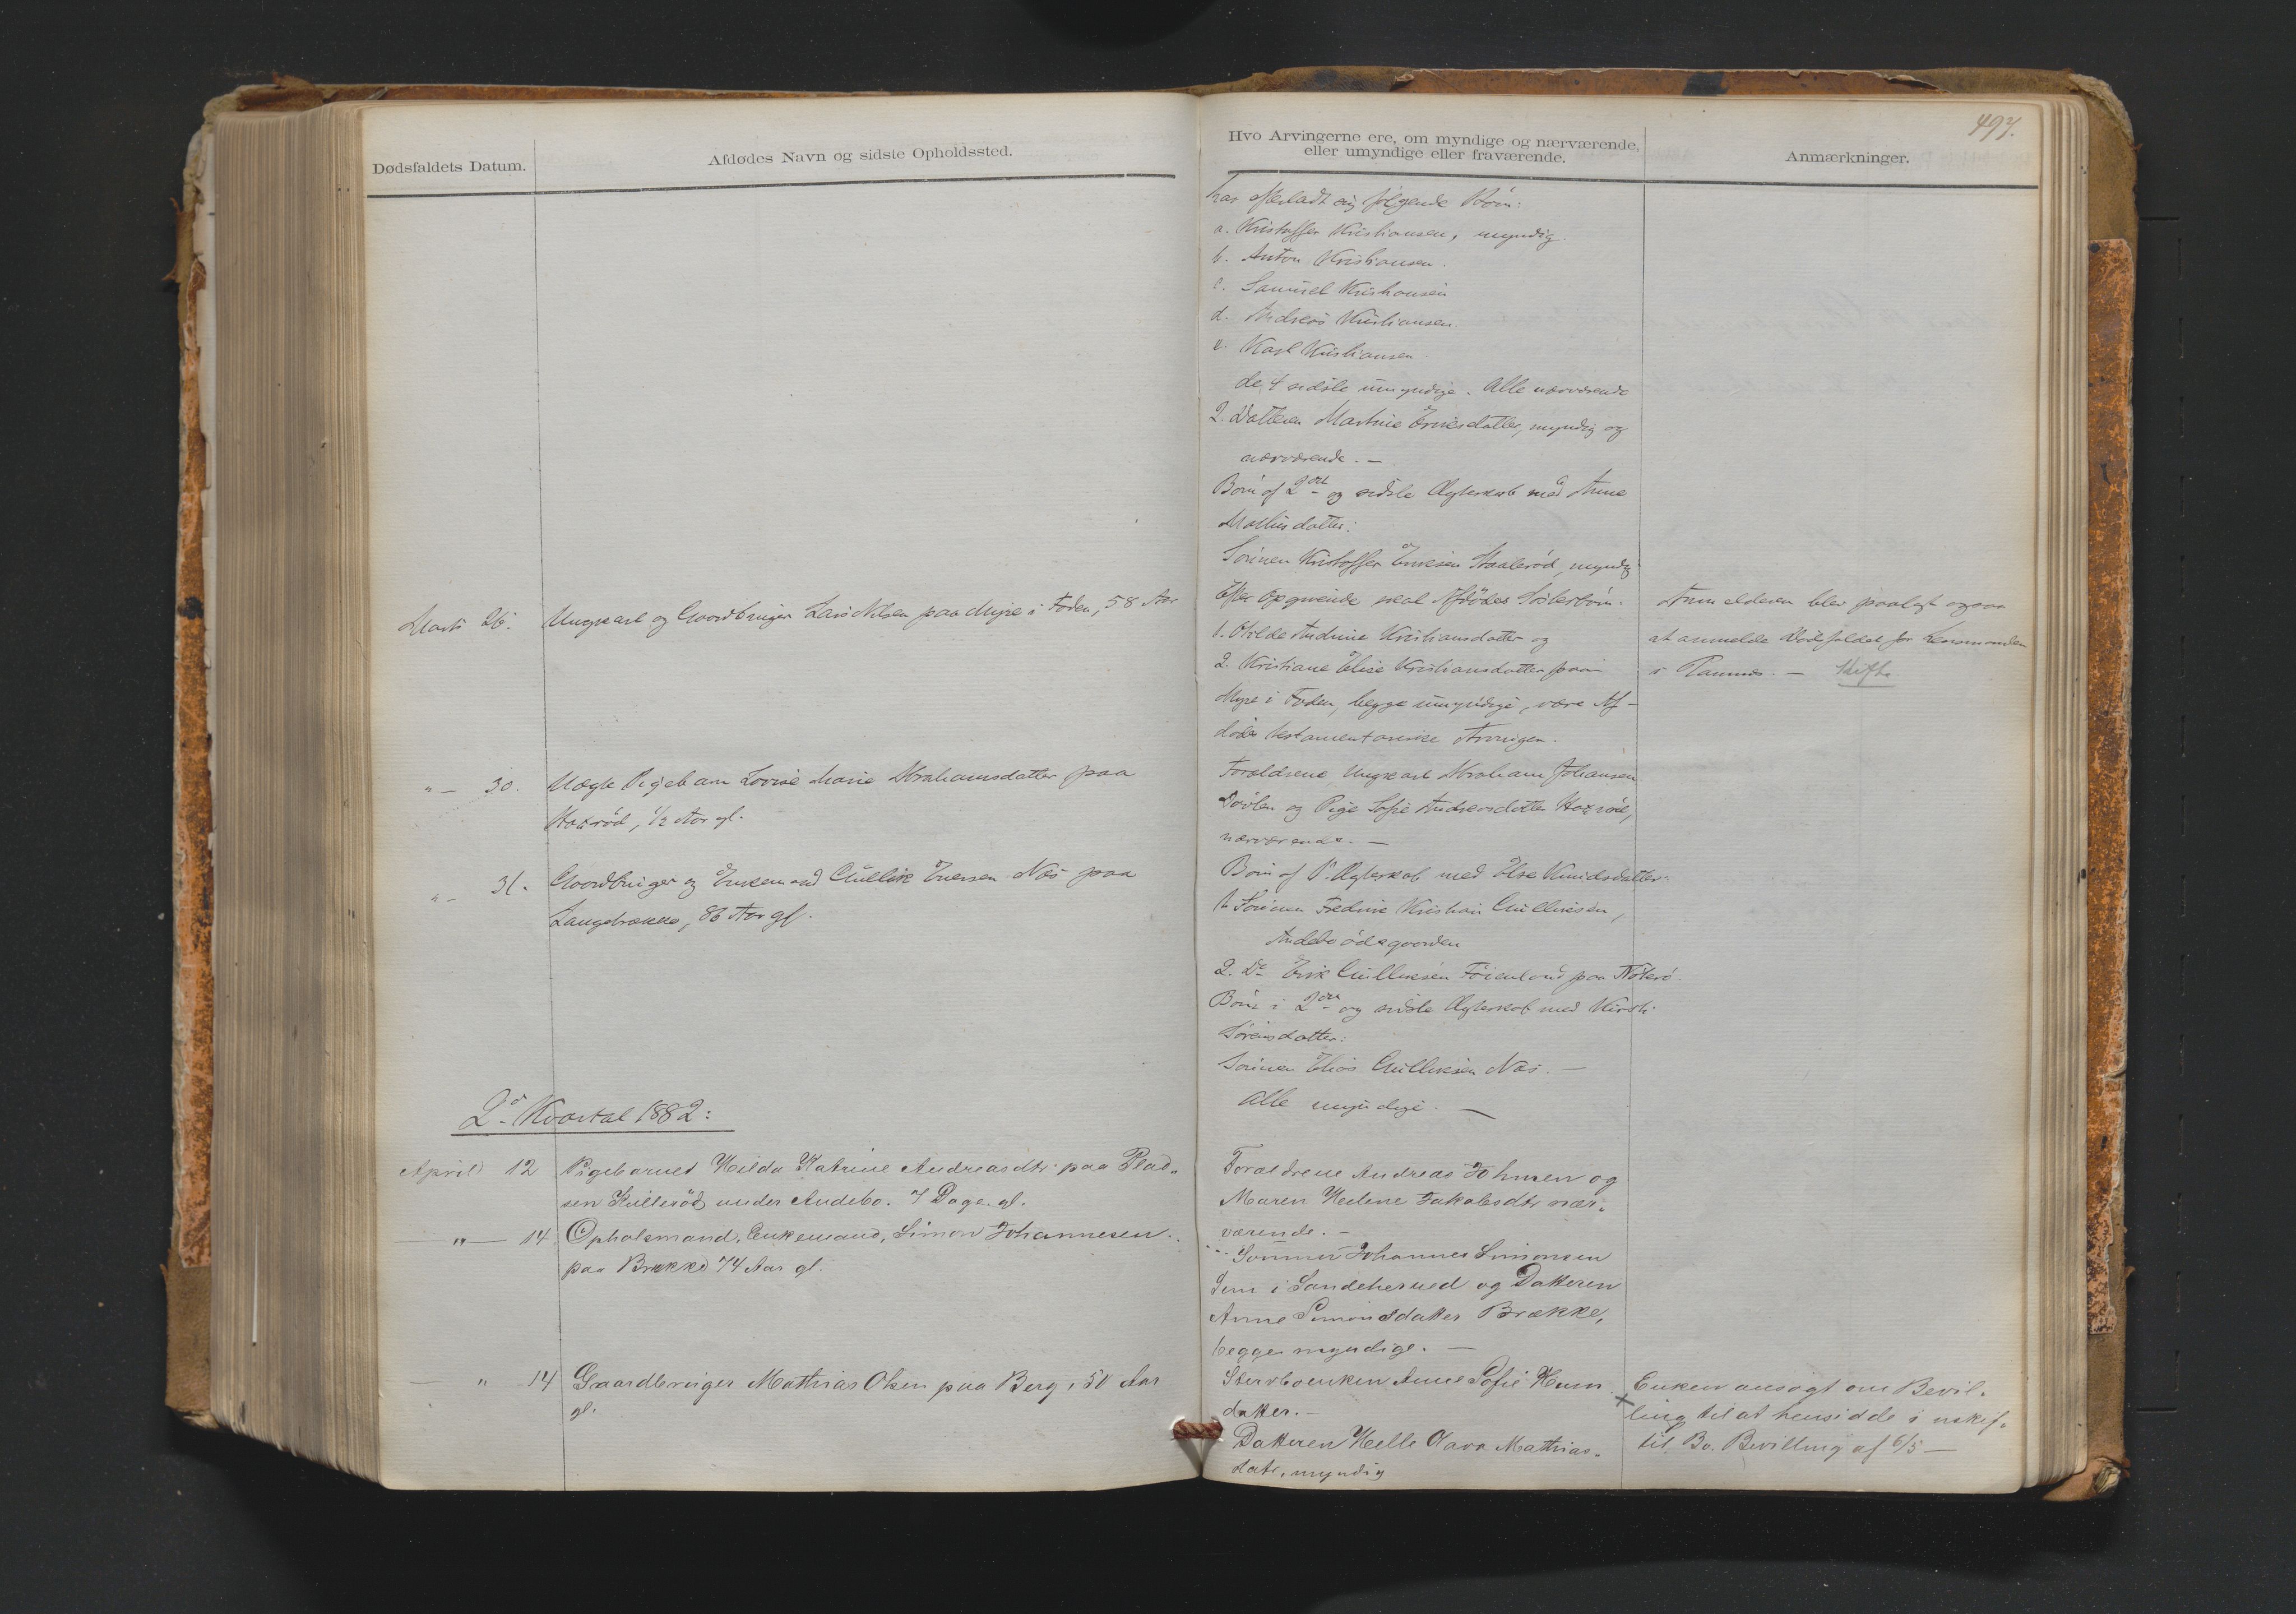 Dødsfaldets Datum.
Afdødes Navn og sidste Opholdssted.
Marts 26. Ungkarl og Gaardbruger Lars Nilsen paa Myre i Foden, 58 Aar
" — 30. Uægte Pigebarn Lovise Marie Abrahamsdatter paa
Haxrød, 1/2 Aar gl.
" — 31. Gaardbruger og Enkemand Gullik Iversen Næs paa
Langebrække, 86 Aar gl.
2det Kvartal 1882:
April 12 Pigebarnet Hilda Katrine Andreasdtr paa Plad-
sen Skillerød under Andebo. 7 Dage gl.
— " — 14 Opholsmand, Enkemand, Simon Johannesen
paa Brække 74 Aar gl.
— " 14 Gaardbruger Mathias Olsen paa Berg, 50 Aar
gl.
497.
Hvo Arvingerne ere, om myndige og nærværende,
eller umyndige eller fraværende.
Anmærkninger.
har efterladt sig følgende Børn:
a. Kristoffer Kristiansen, myndig.
b. Anton Kristiansen.
c. Samuel Kristiansen
d. Andreas Kristiansen.
e. Karl Kristiansen.
de 4 sidste umyndige. Alle nærværende
2. Datteren Martine Eriksdatter, myndig og
nærværende. —
Børn af 2det og sidste Ægteskab med Anne
Mathisdatter:
Sønnen Kristoffer Eriksen Haalerød, myndig
Efter Opgivende skal Afdødes Søsterbørn:
1. Olilde Andrine Kristiansdatter og
2. Kristiane Elise Kristiansdatter paa
Myre i Foden, begge umyndige, være Af-
dødes testamentariske Arvinger.
Anmelderen blev paalagt ogsaa
at anmelde Dødsfaldet for Lensmanden
i Ramnes. — Skifte
Forældrene, Ungkarl Abraham Johansen
Døvlen og Pige Sofie Andreasdatter Haxrød,
nærværende. —
Børn af 1ste Ægteskab med Else Knudsdatter:
1. Sønnen Fredrik Kristian Gulliksen,
Andebo ødegaarden
2. Do Erik Gulliksen Føienland paa Nøterø.
Børn i 2det og sidste Ægteskab med Kirsti
Sørensdatter:
Sønnen Elias Gulliksen Næs. —
Alle myndige. —
Forældrene Andreas Johnsen og
Maren Helene Jakobsdtr nær-
værende. —
Sønnen Johannes Simonsen
Jem i Sandeherred og Datteren
Anne Simonsdatter Brække,
begge myndige. —
Stervboenken Anne Sofie
datter. —
Datteren Helle Olava Mathias-
datr, myndig
Enken ansøgt om Bevil-
ling til at hensidde i uskif-
tet Bo. Bevilling af 6/5 —